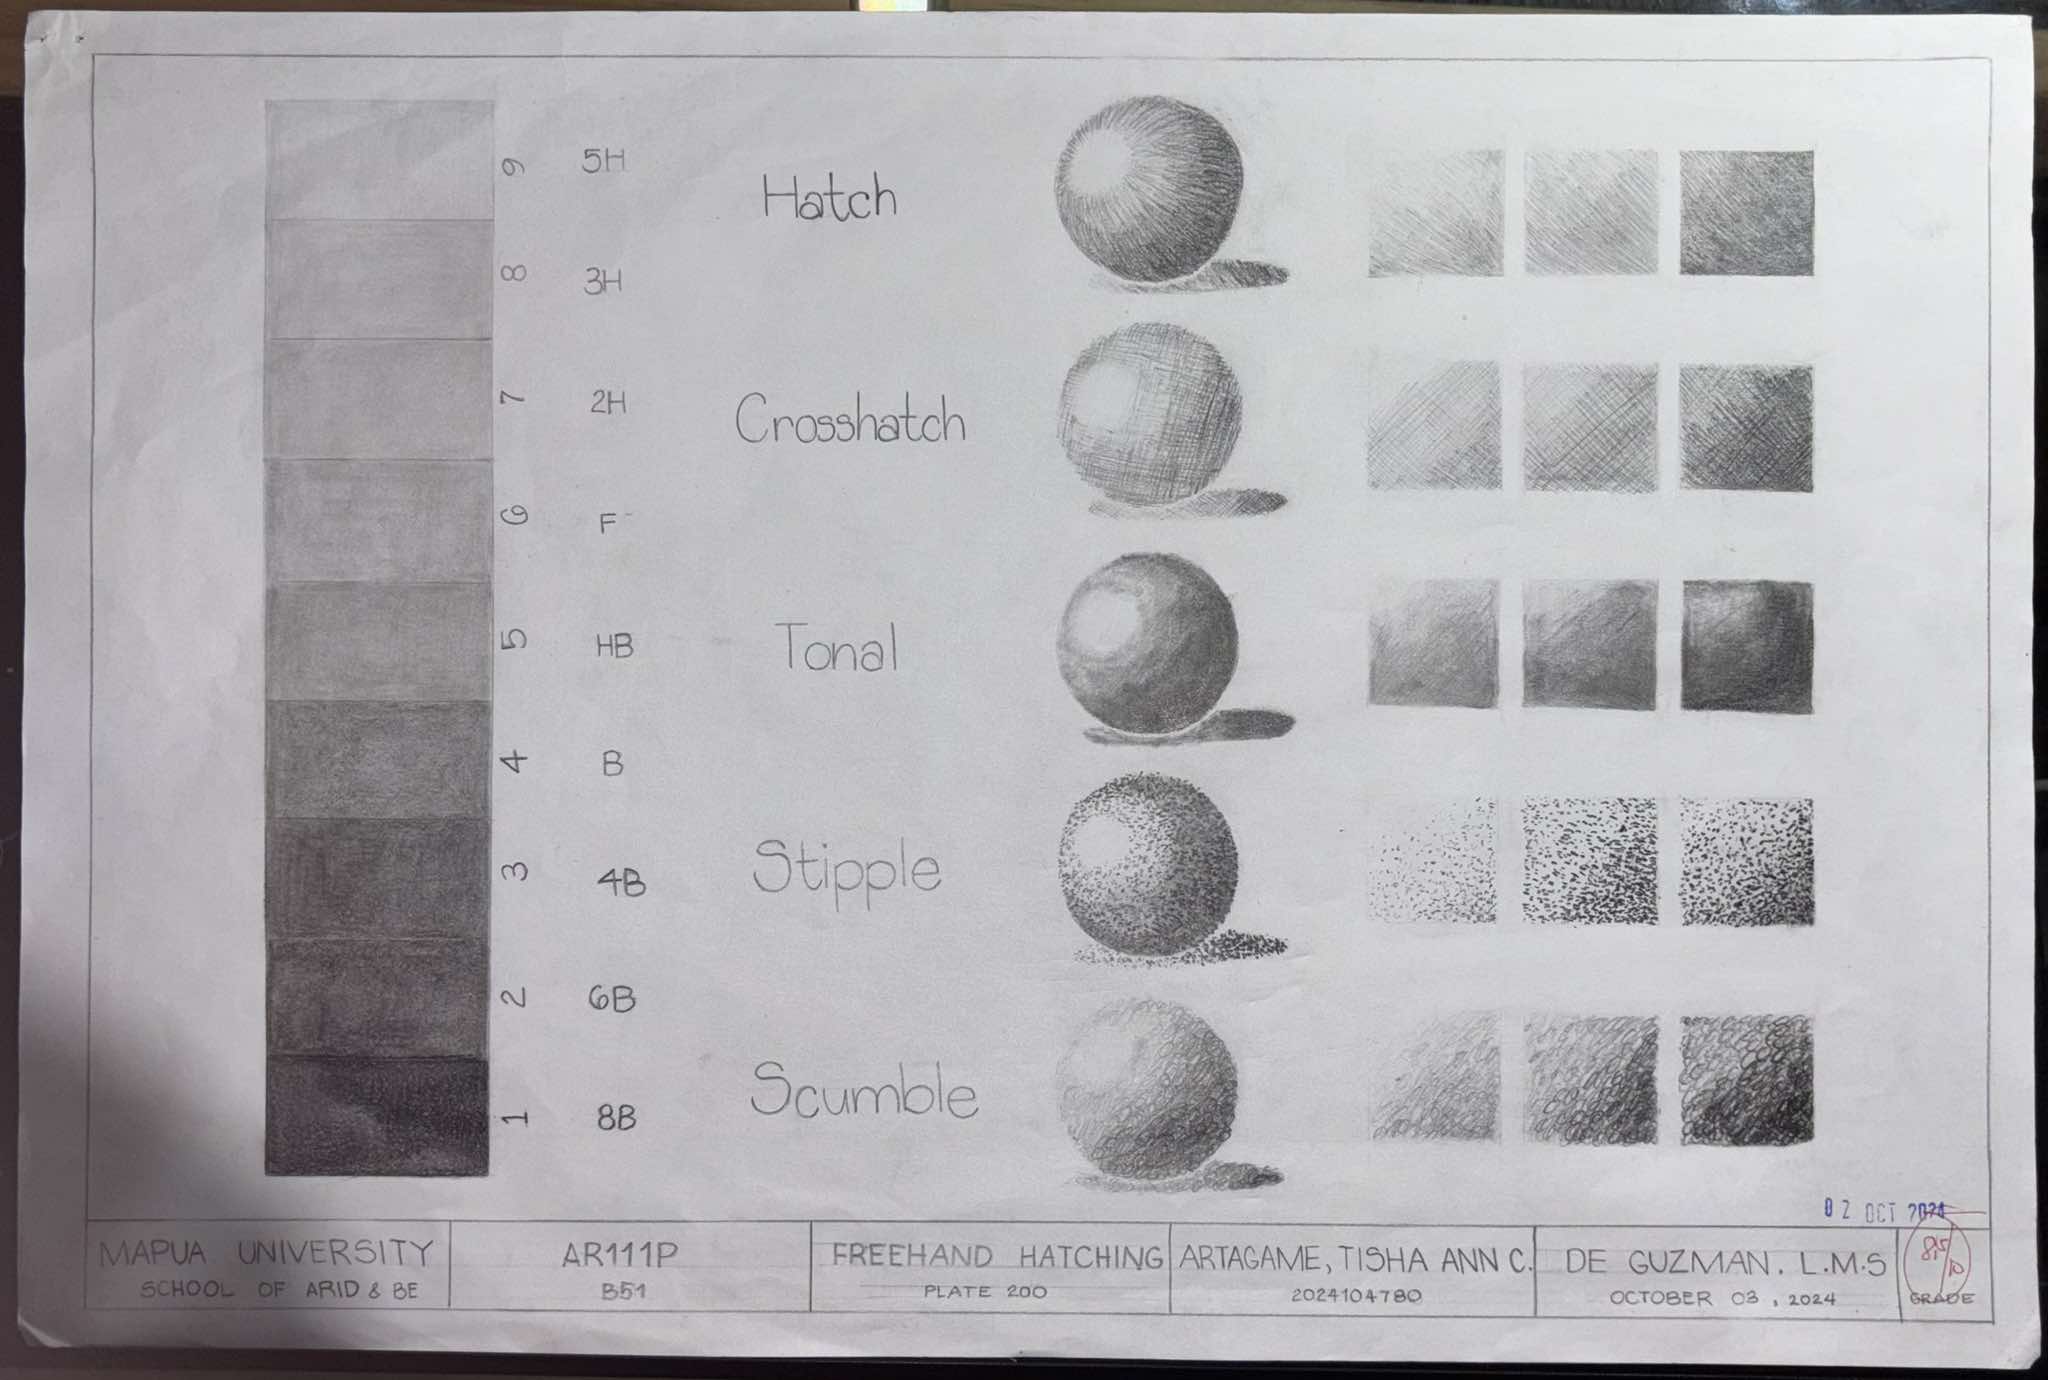 9 5H
8 3H
7 2H
6 F
5 HB
4 B
3 4B
2 6B
1 8B
Hatch
Crosshatch
Tonal
Stipple
Scumble
02 OCT 2024
MAPUA UNIVERSITY
SCHOOL OF ARID & BE
AR111P
B51
FREEHAND HATCHING
PLATE 200
ARTAGAME, TISHA ANN C.
2024104780
DE GUZMAN. L.M.S
OCTOBER 03, 2024
8.5/10
GRADE